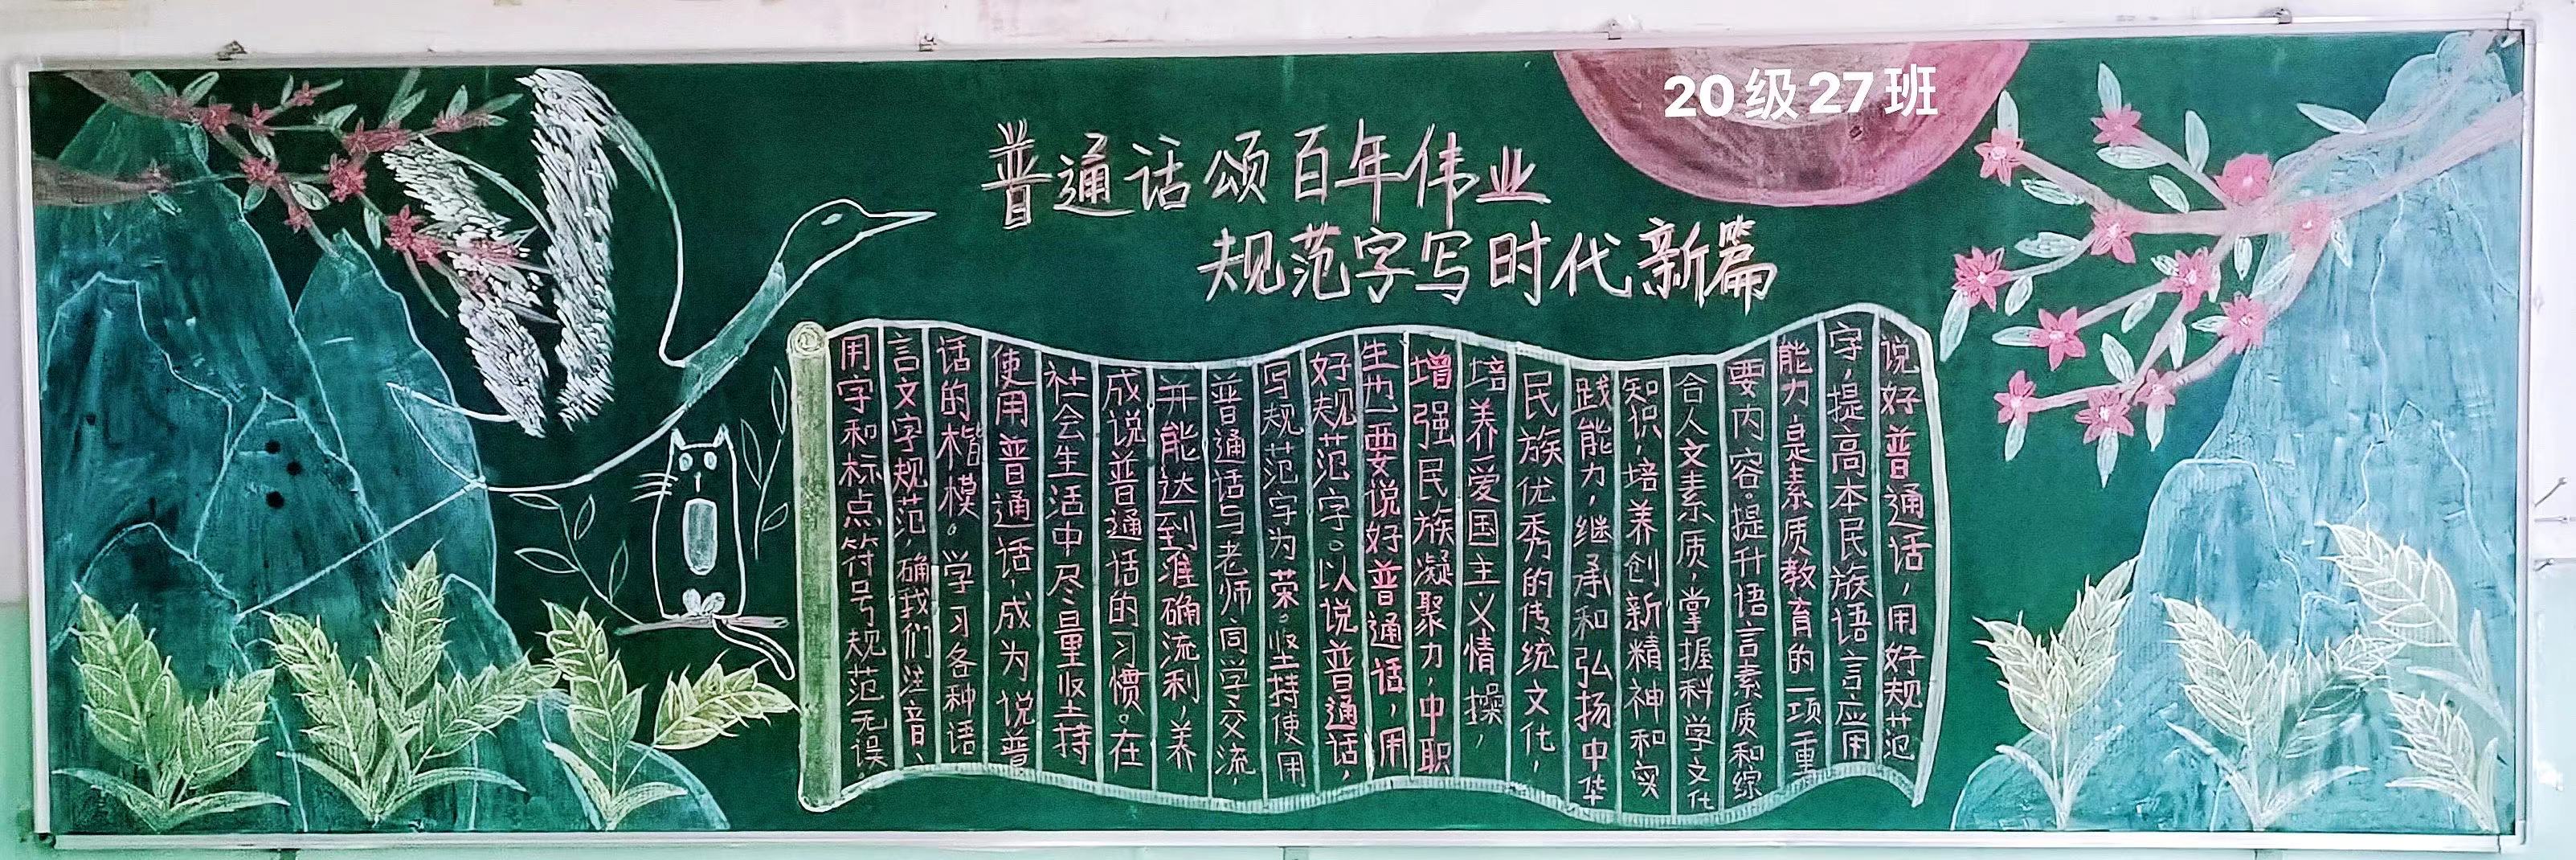 20级27班
普通话颂百年伟业
规范字写时代新篇
说好普通话，用好规范
字，提高本民族语言应用
能力，是素质教育的一项重
要内容。提升语言素质和综
合人文素质，掌握科学文化
知识，培养创新精神和实
践能力，继承和弘扬中华
民族优秀的传统文化，
培养爱国主义情操，
增强民族凝聚力，中职
生也要说好普通话，用
好规范字。以说普通话，
写规范字为荣。坚持使用
普通话与老师同学交流，
并能达到准确流利，养
成说普通话的习惯。在
社会生活中尽量坚持
使用普通话，成为说普
话的楷模。学习各种语
言文字规范，确我们注音、
用字和标点符号规范无误。